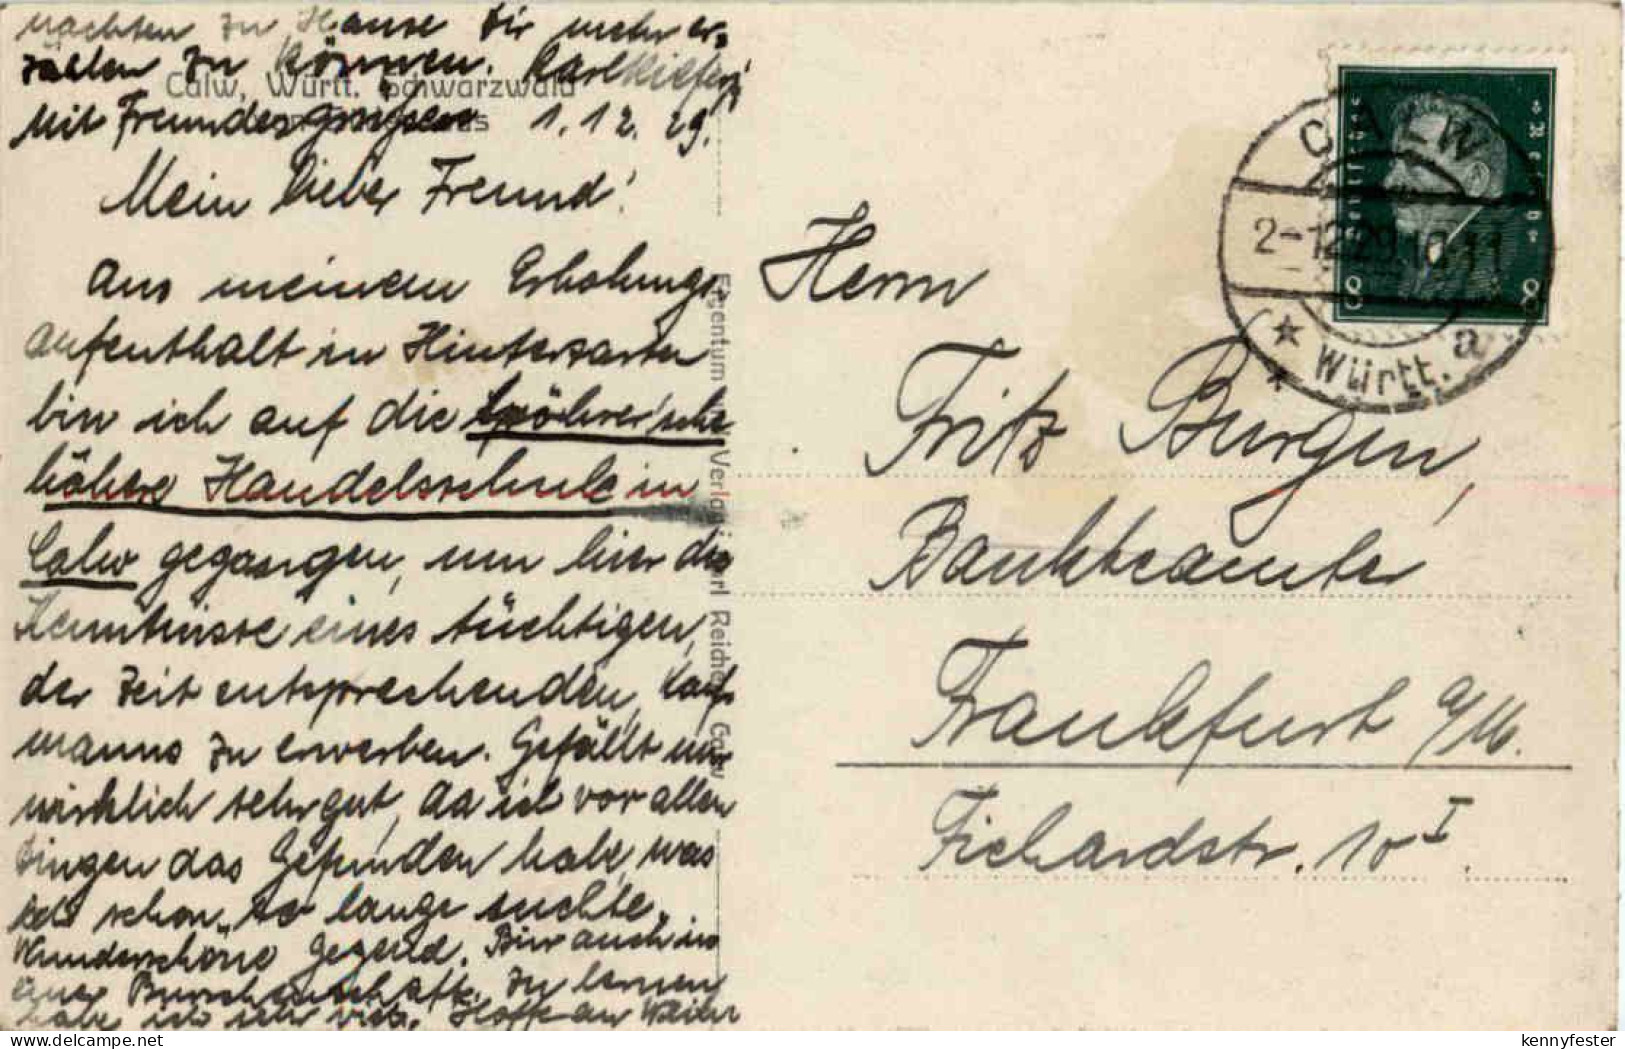 nachten zu Hause Dir mehr er=
zählen zu können. Karl Kiefer
Calw, Württ. Schwarzwald
Mit Freundesgrüßen 1.12.29.
Mein lieber Freund!
Aus meinem Erholungs
aufenthalt in Hinterzarten
bin ich auf die Spöhrer'sche
höhere Handelsschule in
Calw gegangen, um hier die
Kenntnisse eines tüchtigen,
der Zeit entsprechenden, Kauf-
manns zu erwerben. Gefällt mir
wirklich sehr gut, da ich vor allen
Dingen das Gefunden habe, was
ich schon so lange suchte.
Wunderschöne Gegend. Bin auch in
einer Burschenschaft. Zu lernen
habe ich sehr viel. Hoffe an Weih
Eigentum u. Verlag Carl Reichert Calw
CALW
2-12.29.10-11
Württ.
a
Deutsches Reich
8 8
Herrn
Fritz Bürgen,
Bankbeamter
Frankfurt a/M.
Fichardstr. 10 I
kennyfester